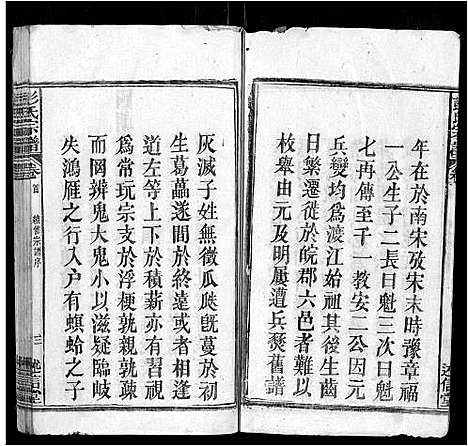 年在於南宋攷宋末時豫章福
一公生子二長曰魁三次曰魁
七再傳至千一敎安二公因元
兵變均爲渡江始祖其後生齒
日繁遷徙於皖郡六邑者難以
校舉由元及明屢遭兵燹舊譜
灰滅子姓無徵瓜瓞旣蔓於初
生葛藟遂間於終遠或者相逢
道左等上下於積薪亦有習見
爲常玩宗支於浮梗孰親孰疎
而罔辨鬼大鬼小以滋疑臨岐
失鴻雁之行入戶有螟蛉之子
彭氏宗譜
卷首
續修宗譜序
三
述信堂